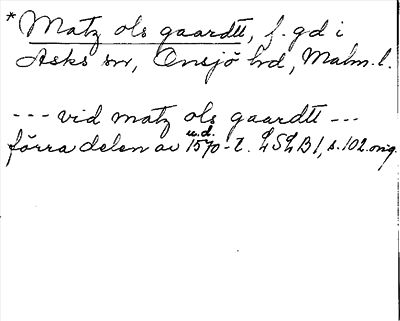 * Matz ols gaardtt, f. gd i
Asks sn, Onsjö hd, Malm. l.
--- vid matz ols gaardtt ---
u.d.
förra delen av 1570-t. LSLB 1, s. 102. orig.